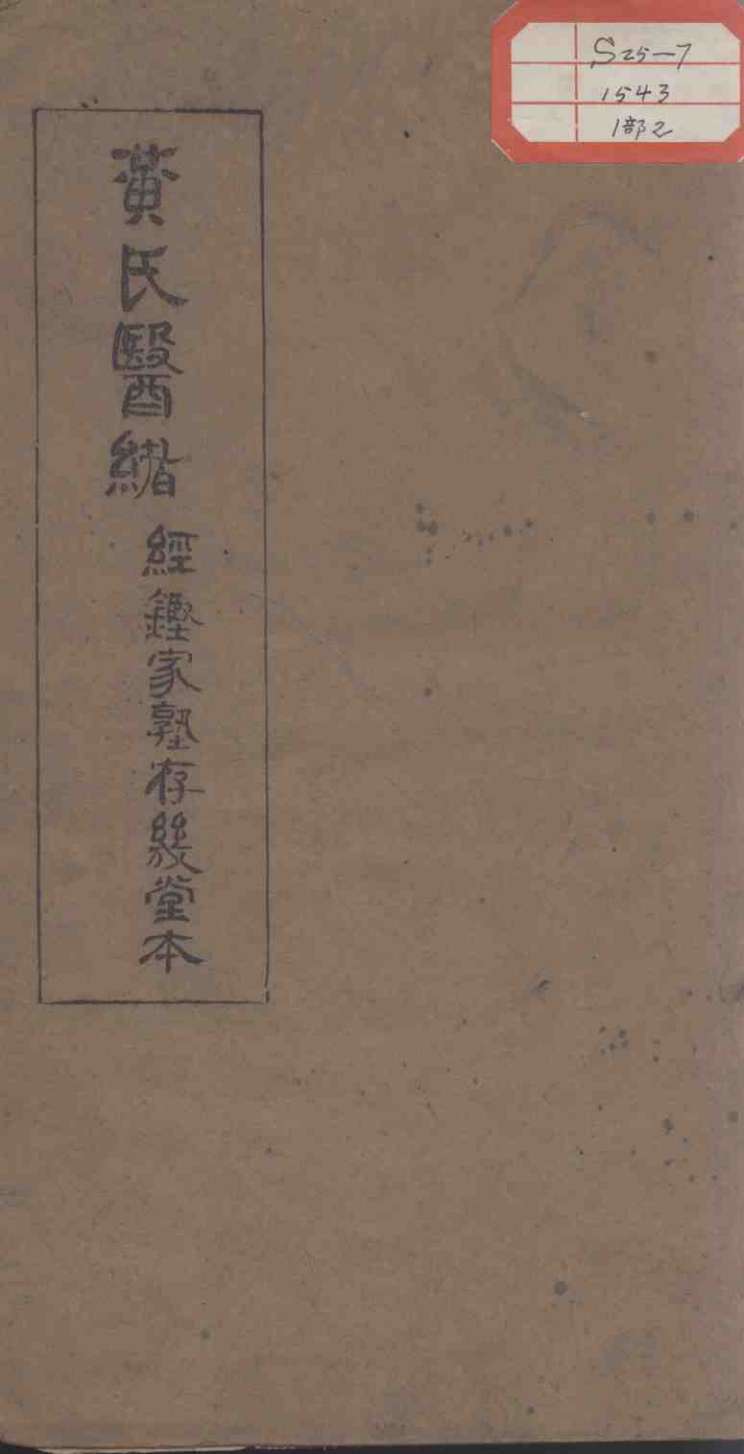 S25-7
1543
1部2
黃氏醫緒
經鏗家塾存幾堂本